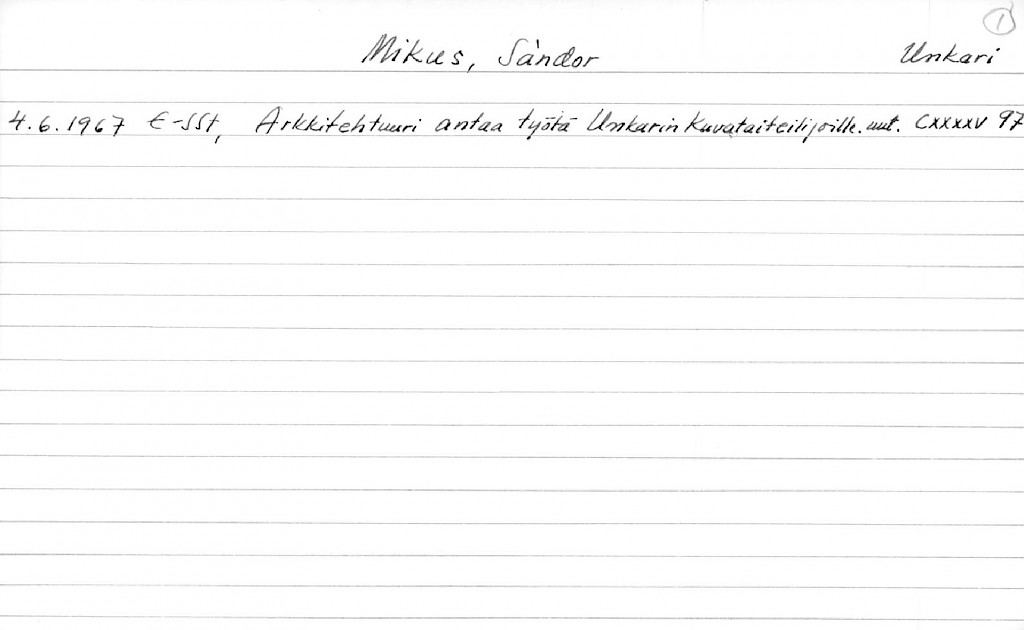 1
Mikus, Sàndor Unkari
4.6.1967 E-SSt, Arkkitehtuuri antaa työtä Unkarin kuvataiteilijoille. uut. CXXXXV 97